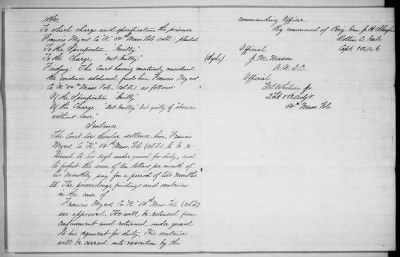 To which charge and specification the prisoner
Francis Myers Co "K" 54th Mass Vols (cold) pleaded
To the Specification "Guilty"
To the Charge "not Guilty"
Finding: The Court having maturely considered
the evidence adduced, finds him Francis Myers
Co "K" 54th Mass Vols (cold) as follows
Of the Specification "Guilty"
Of the Charge "Not Guilty, but guilty of absence
without leave"
Sentence
The Court does therefore sentence him Francis
Myers Co "K" 54th Mass Vols (cold) to be re-
turned to his Regt under guard for duty, and
to forfeit the sum of ten dollars per month of
his monthly pay for a period of two months
The proceedings findings and sentence
in the case of
Francis Myers Co "K" 54th Mass Vols (cold)
are approved. He will be released from
confinement and returned under guard
to his regiment for duty. This sentence
will be carried into execution by the
commanding Officer.
By command of Brig Gen
Capt & A.A.G.
Official
(Sgd)
J. W.
A.A.D.C.
Official
2nd Lt & A Adjt
54th Mass Vols